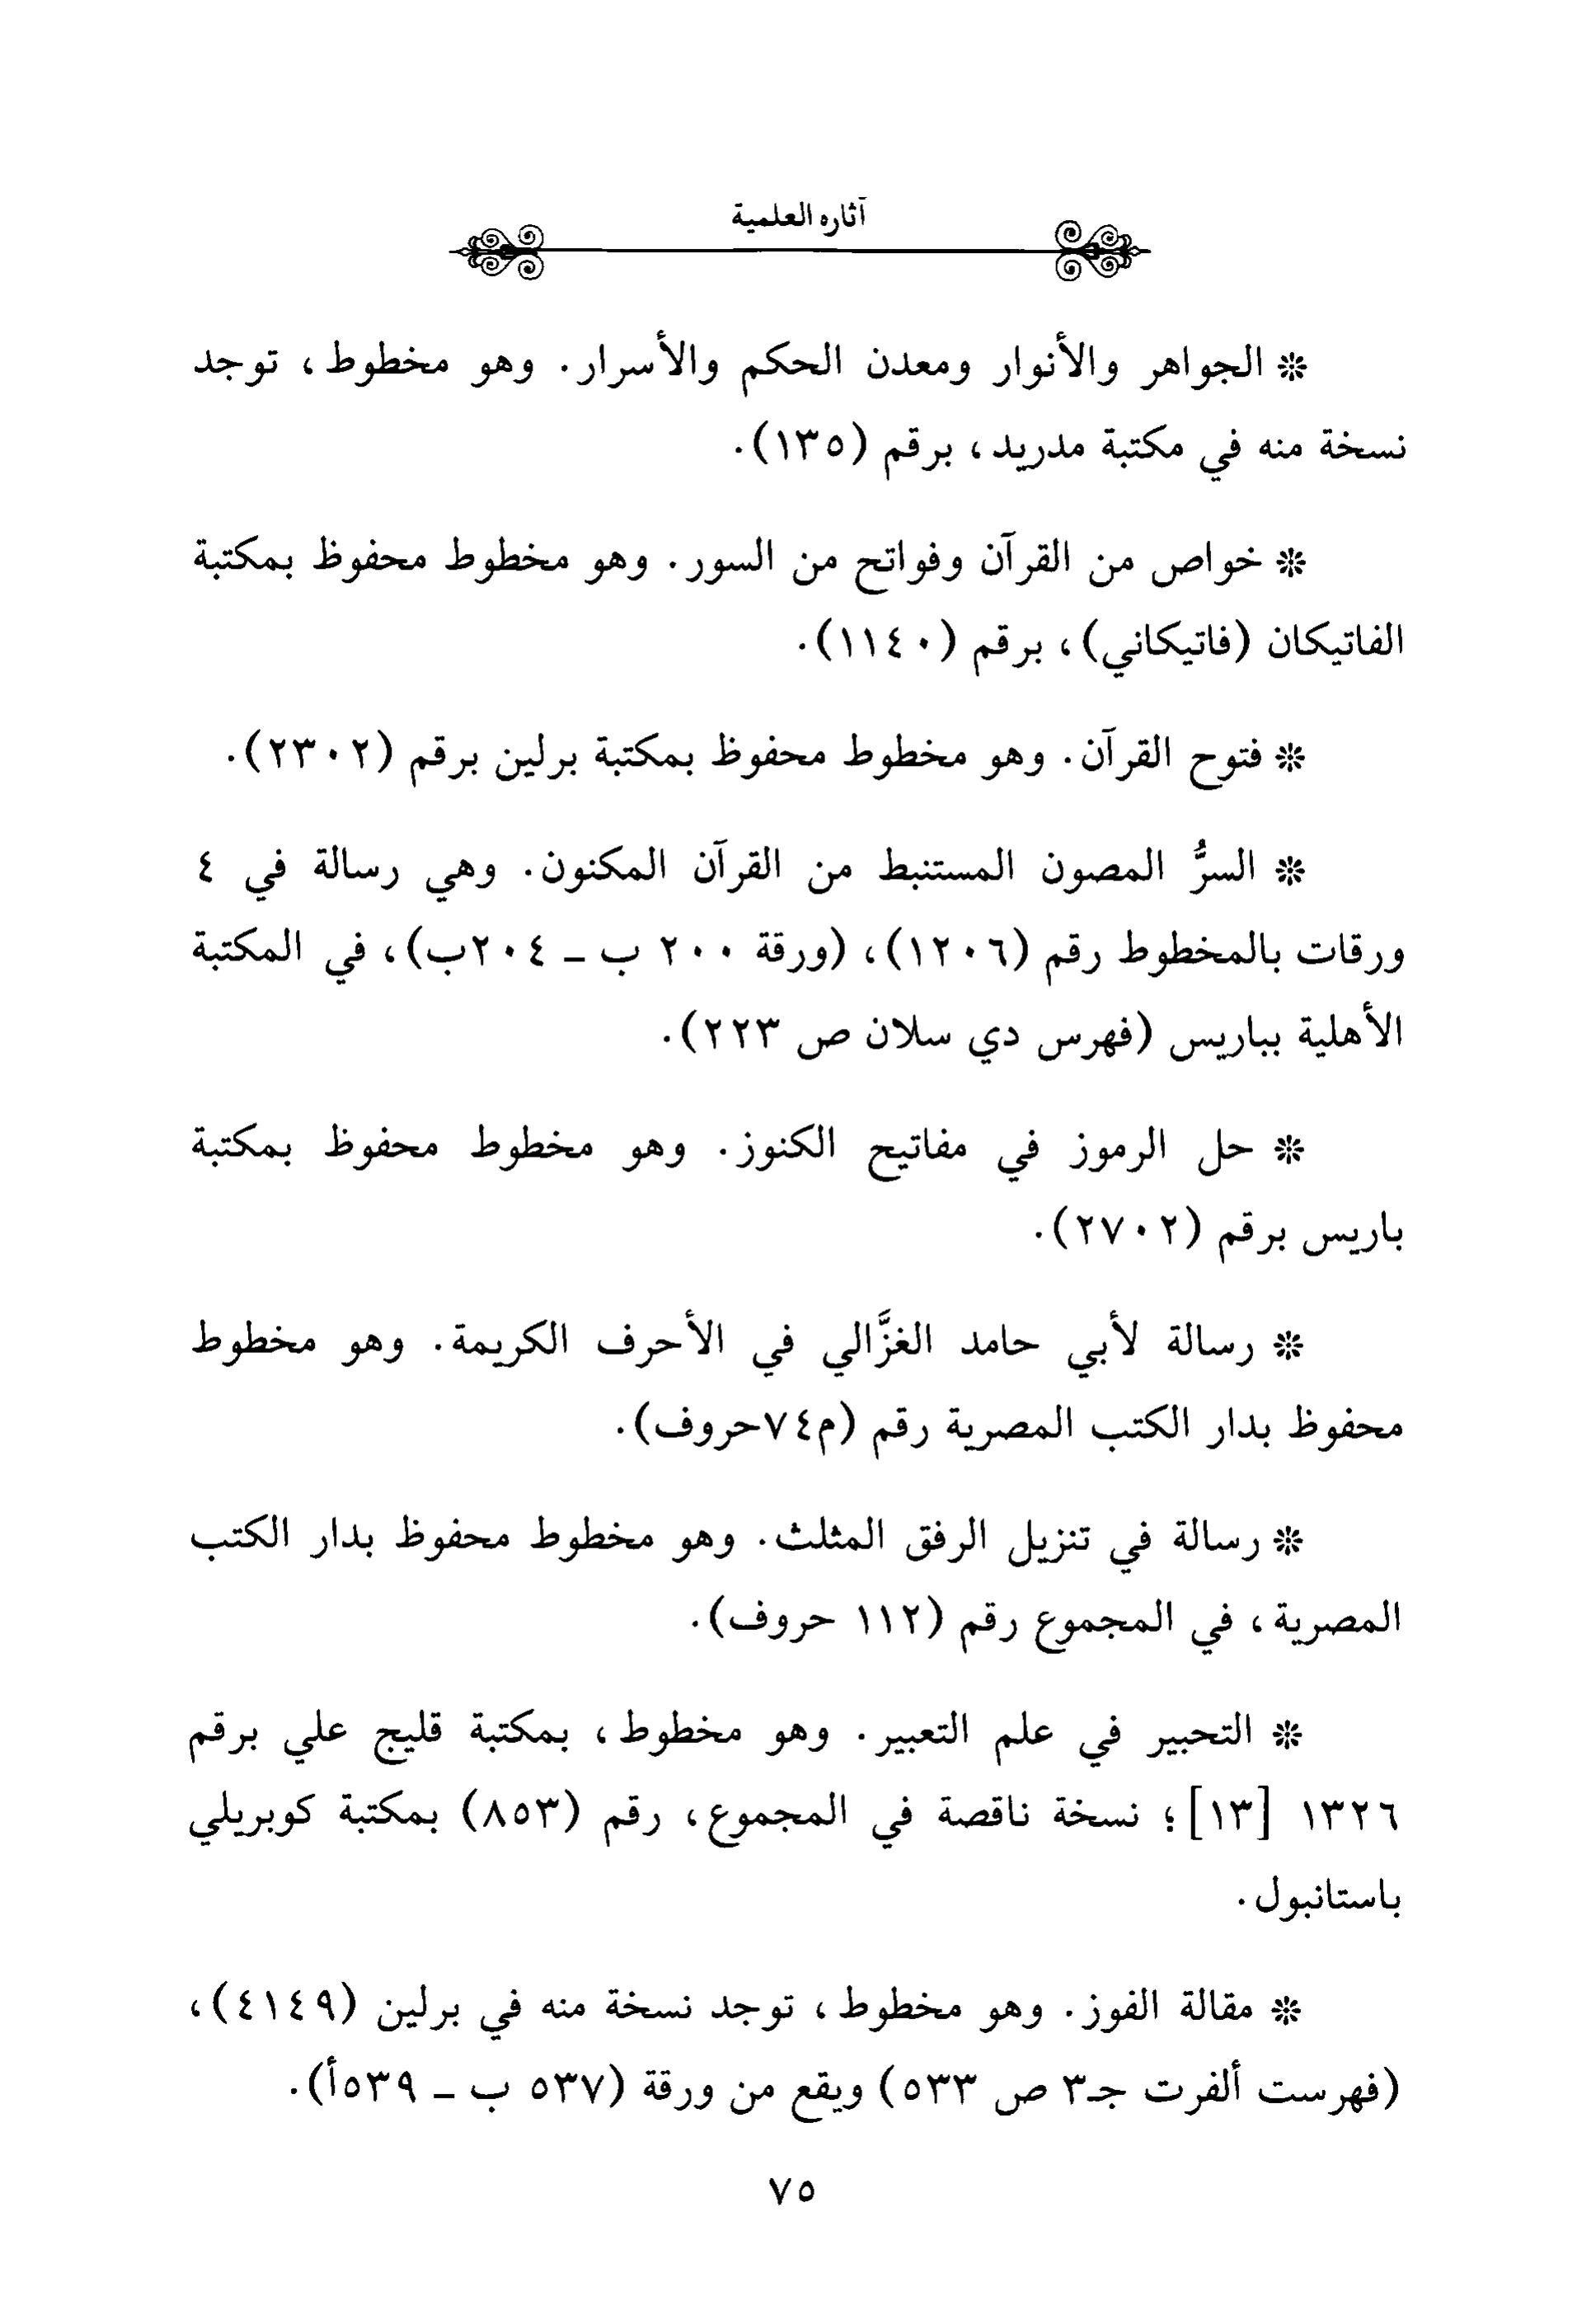 آثاره العلمية
❊ الجواهر والأنوار ومعدن الحكم والأسرار. وهو مخطوط، توجد
نسخة منه في مكتبة مدريد، برقم (١٣٥).
❊ خواص من القرآن وفواتح من السور. وهو مخطوط محفوظ بمكتبة
الفاتيكان (فاتيكاني)، برقم (١١٤٠).
❊ فتوح القرآن. وهو مخطوط محفوظ بمكتبة برلين برقم (٢٣٠٢).
❊ السرُّ المصون المستنبط من القرآن المكنون. وهي رسالة في ٤
ورقات بالمخطوط رقم (١٢٠٦)، (ورقة ٢٠٠ ب - ٢٠٤ب)، في المكتبة
الأهلية بباريس (فهرس دي سلان ص ٢٢٣).
❊ حل الرموز في مفاتيح الكنوز. وهو مخطوط محفوظ بمكتبة
باريس برقم (٢٧٠٢).
❊ رسالة لأبي حامد الغزَّالي في الأحرف الكريمة. وهو مخطوط
محفوظ بدار الكتب المصرية رقم (م٧٤حروف).
❊ رسالة في تنزيل الرفق المثلث. وهو مخطوط محفوظ بدار الكتب
المصرية، في المجموع رقم (١١٢ حروف).
❊ التحبير في علم التعبير. وهو مخطوط، بمكتبة قليج علي برقم
١٣٢٦ [١٣]؛ نسخة ناقصة في المجموع، رقم (٨٥٣) بمكتبة كوبريلي
باستانبول.
❊ مقالة الفوز. وهو مخطوط، توجد نسخة منه في برلين (٤١٤٩)،
(فهرست ألفرت جـ٣ ص ٥٣٣) ويقع من ورقة (٥٣٧ ب - ٥٣٩أ).
٧٥